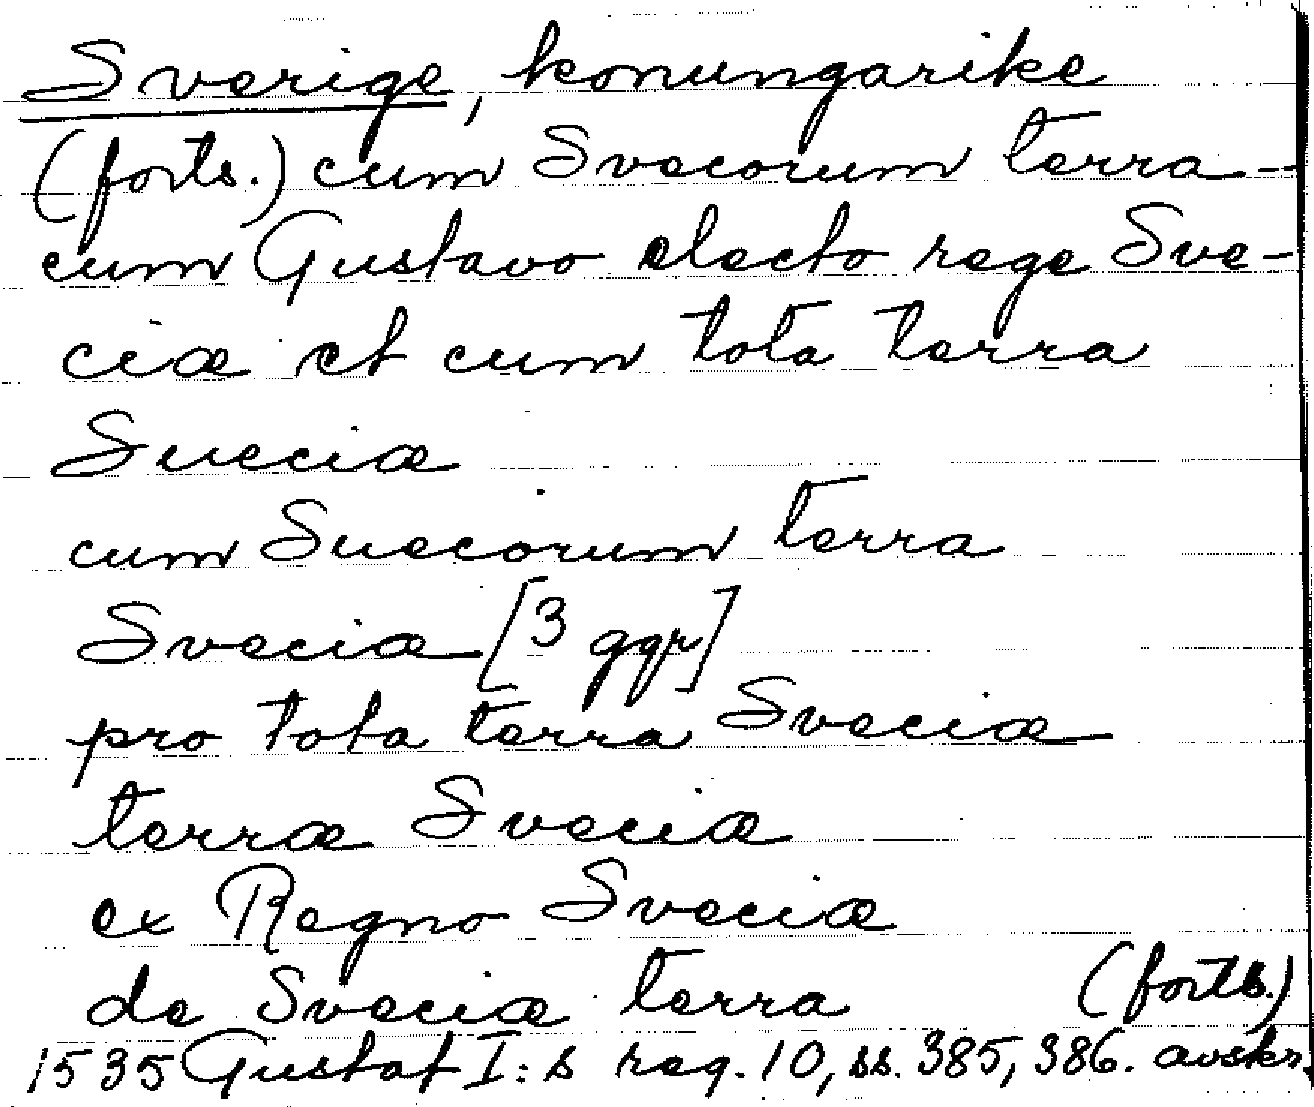 Sverige, konungarike
(forts.) cum Svecorum terra -
cum Gustavo electo rege Sve-
ciæ et cum tota terra
Sueciæ
cum Suecorum terra
Sveciæ [3 ggr]
pro tota terra Sveciæ
terræ Sveciæ
ex Regno Sveciæ
de Sveciæ terra (forts.)
1535 Gustaf I:s reg. 10, ss. 385, 386. avskr.